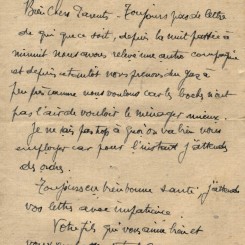 Bien Chers Parents - Toujours pas de lettre
de qui que ce soit, depuis la nuit passée à
minuit nous avons relevé une autre compagnie
et depuis nous prenons du gaz à
peu près comme nous voulons car les boches n'ont
pas l'air de vouloir le ménager mieux.
Je ne sais pas trop à quoi on va bien nous
employer car pour l'instant j'attends
des ordres.
Toujours en bien bonne santé j'attends
vos lettres avec impatience.
Votre fils qui vous aime bien et